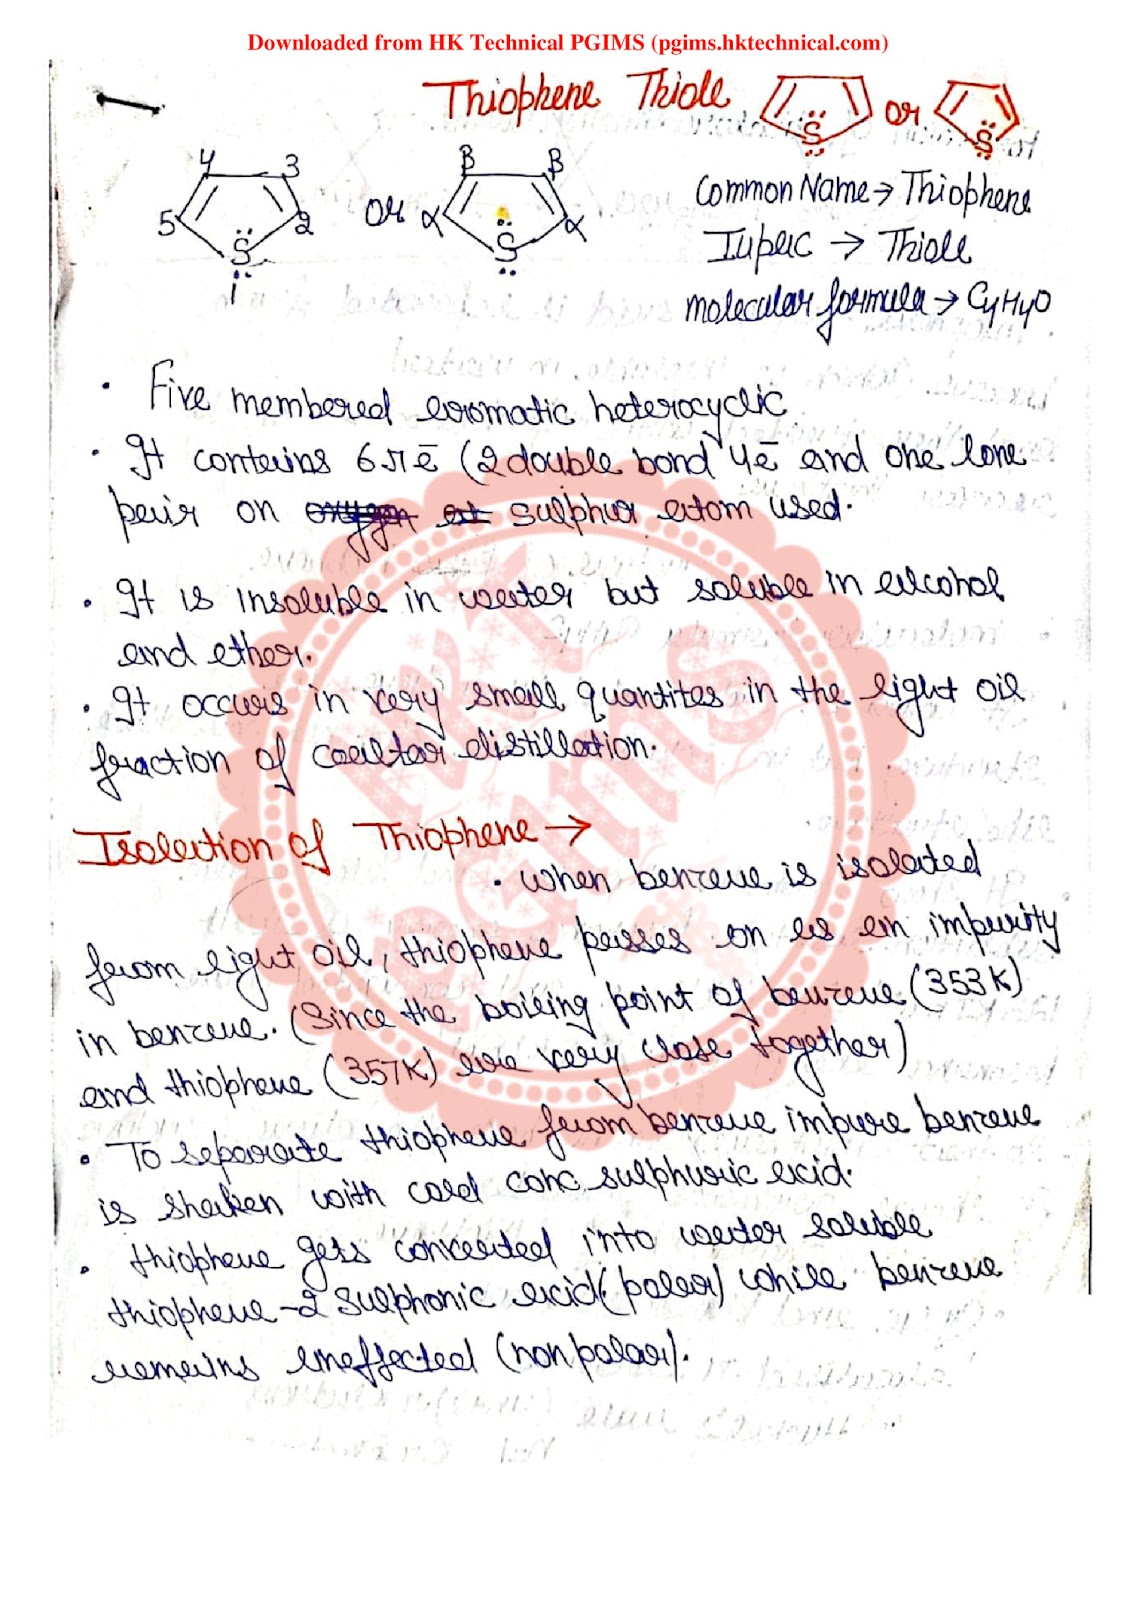 Downloaded from HK Technical PGIMS (pgims.hktechnical.com)
Thiophene Thiole S or S
4 3 5 2 S 1 or β β α α S
Common Name → Thiophene
Iupac → Thiole
molecular formula → C4H4O
• Five membered aromatic heterocyclic
• It contains 6πē (2 double bond 4ē and one lone
pair on oxygen at sulphur atom used.
• It is insoluble in water but soluble in alcohol
and ether.
• It occurs in very small quantites in the light oil
fraction of coaltar distillation.
Isolation of Thiophene →
• when benzene is isolated
from light oil, thiophene passes on as an impurity
in benzene. (Since the boiling point of benzene (353K)
and thiophene (357K) are very close together)
• To separate thiophene from benzene impure benzene
is shaken with cold conc. sulphuric acid.
• thiophene gets converted into water soluble
thiophene-2 sulphonic acid (polar) while benzene
remains uneffected (nonpolar).
HKT
PGIMS